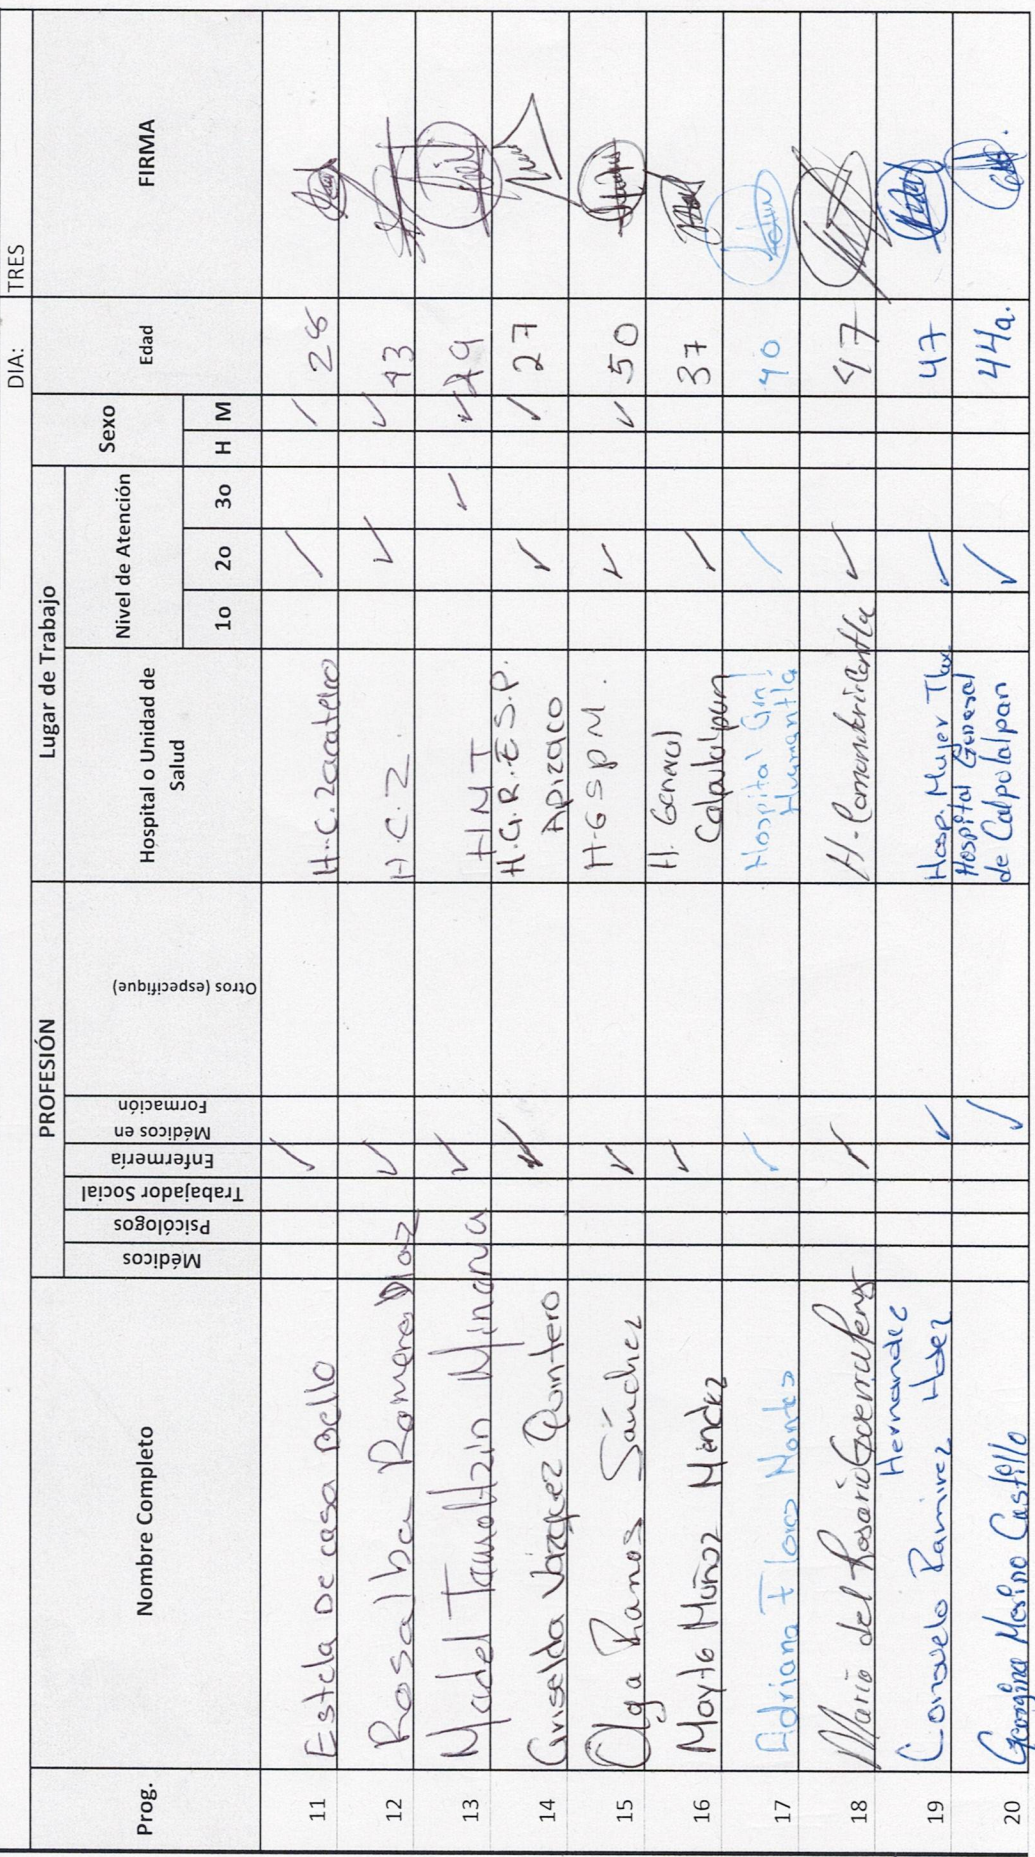 DIA: TRES
Prog. Nombre Completo PROFESIÓN Lugar de Trabajo Sexo Edad FIRMA
Médicos Psicólogos Trabajador Social Enfermería Médicos en Formación Otros (especifique) Hospital o Unidad de Salud Nivel de Atención
1o 2o 3o H M
11 Estela De casa Bello ✓ H.C. Zacatelco ✓ ✓ 28
12 Rosalba Romero Diaz ✓ H.C.Z. ✓ ✓ 43
13 Madel Tamoltzin Minarva ✓ HNT ✓ ✓ 49
14 Griselda Vázquez Quintero ✓ H.G.R.E.S.P. Apizaco ✓ ✓ 27
15 Olga Ramos Sánchez ✓ H.G S P M. ✓ ✓ 50
16 Mayte Muñoz Méndez ✓ H. General Calpulalpan ✓ 37
17 Adriana Flores Montes ✓ Hospital Gral Huamantla ✓ 40
18 Maria del Rosario Guerra ✓ ✓ 47
19 Consuelo Ramirez Hdez Hernandez ✓ Hosp. Mujer Tlax. ✓ 47
20 Georgina Merino Castillo ✓ Hospital General de Calpulalpan ✓ 44a.